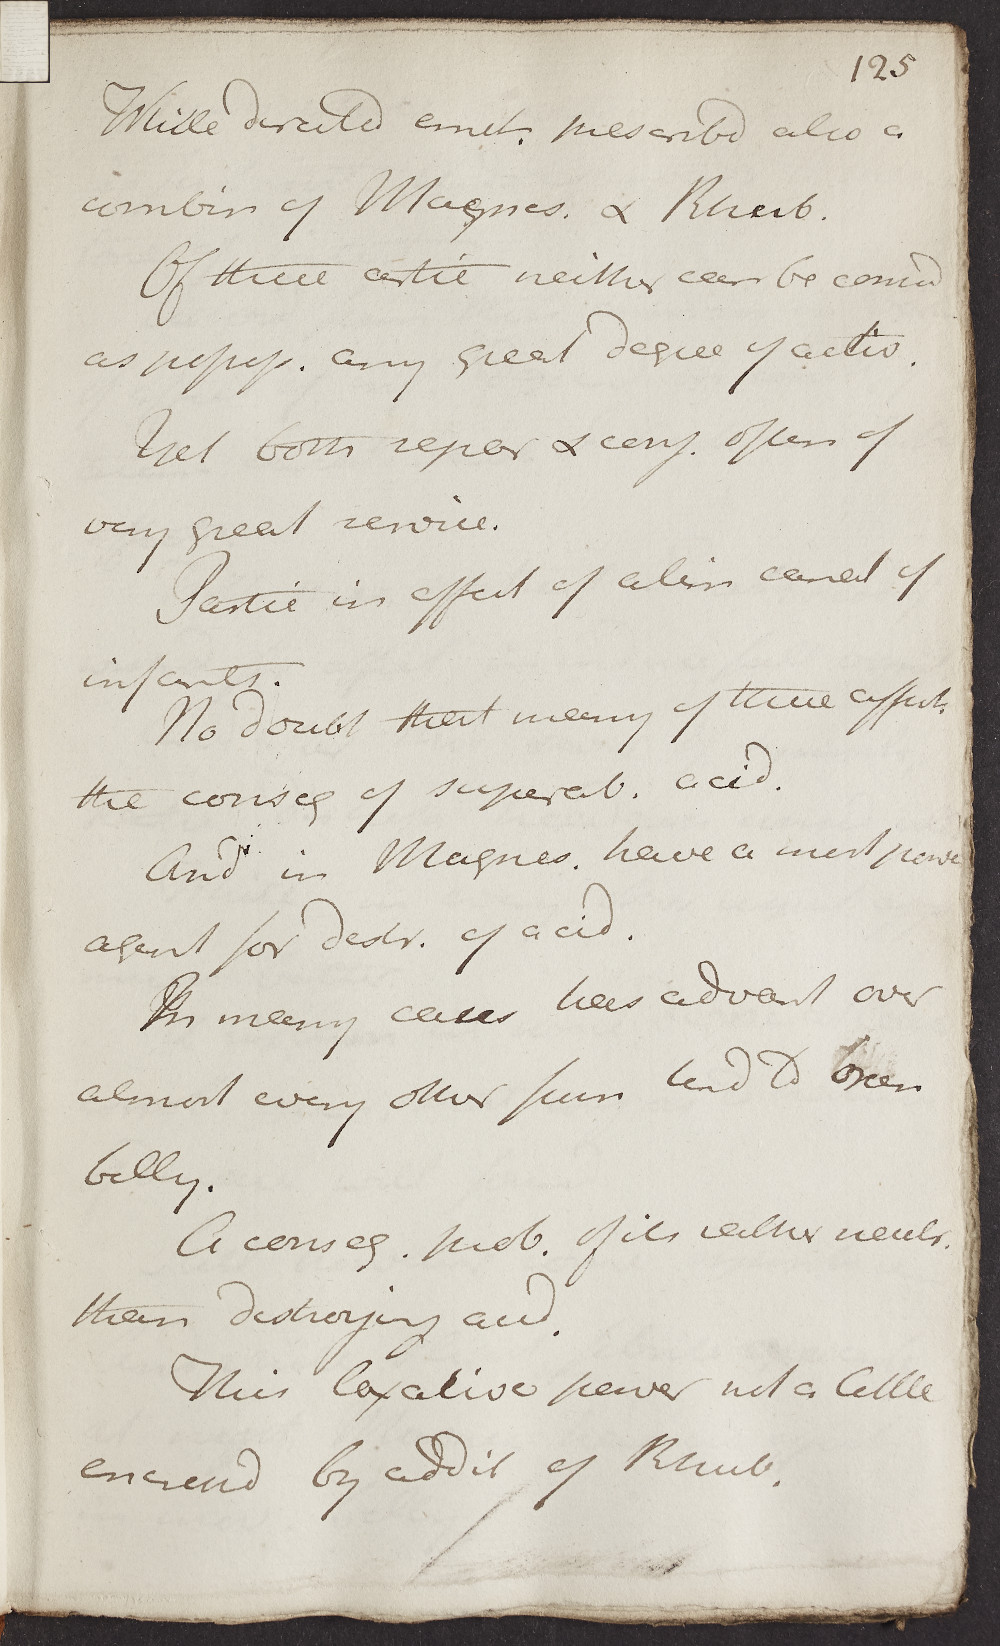 125
While directed emet. prescribd also a
combin of Magnes. & Rheub.
Of these artic neither can be considd
as possess. any great degree of activ.
Yet both separ & conj. often of
very great service.
Partic in affect of alim canal of
infants.
No doubt that many of these affect.
the conseq of superab. acid.
And in Magnes. have a most power
agent for destr. of acid.
In many cases has advant over
almost every other from tend to open
belly.
A conseq. prob. of its rather neutr.
than destroying acid.
This laxative power not a little
encreasd by addit of Rhub.